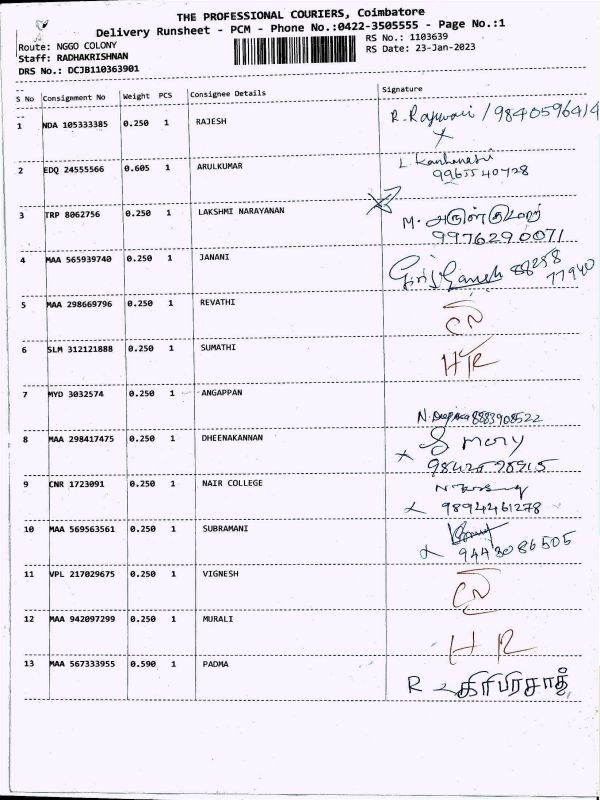 THE PROFESSIONAL COURIERS, Coimbatore
Delivery Runsheet - PCM - Phone No.:0422-3505555 - Page No.:1
Route: NGGO COLONY
RS No.: 1103639
Staff: RADHAKRISHNAN
RS Date: 23-Jan-2023
DRS No.: DCJB110363901
S No Consignment No Weight PCS Consignee Details Signature
1 NDA 105333385 0.250 1 RAJESH R. Rajwari / 9840596414
2 EDQ 24555566 0.605 1 ARULKUMAR L
9965540728
3 TRP 8062756 0.250 1 LAKSHMI NARAYANAN M. அருள்குமார்
9976290071
4 MAA 565939740 0.250 1 JANANI Ganesh 88258
77940
5 MAA 298669796 0.250 1 REVATHI
6 SLM 312121888 0.250 1 SUMATHI
7 MYD 3032574 0.250 1 ANGAPPAN
N. Deepika 8883908522
8 MAA 298417475 0.250 1 DHEENAKANNAN S mary
9 CNR 1723091 0.250 1 NAIR COLLEGE
9894461278
10 MAA 569563561 0.250 1 SUBRAMANI
9443086505
11 VPL 217029675 0.250 1 VIGNESH
12 MAA 942097299 0.250 1 MURALI H R
13 MAA 567333955 0.590 1 PADMA R கிரிபிரசாத்